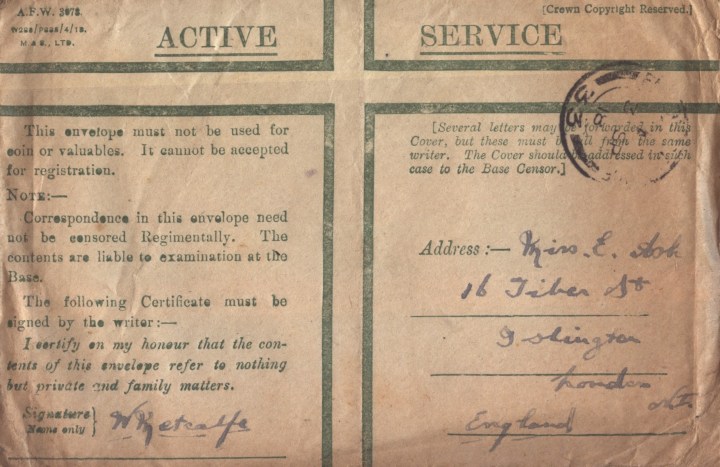 A.F.W. 3078.
M & S., LTD.
[Crown Copyright Reserved.]
ACTIVE SERVICE
This envelope must not be used for
coin or valuables. It cannot be accepted
for registration.
NOTE:—
Correspondence in this envelope need
not be censored Regimentally. The
contents are liable to examination at the
Base.
The following Certificate must be
signed by the writer:—
I certify on my honour that the con-
tents of this envelope refer to nothing
but private and family matters.
Signature
Name only
W Metcalfe
[Several letters may be forwarded in this
Cover, but these must be all from the same
writer. The Cover should be addressed in such
case to the Base Censor.]
Address :— Miss. E. Ash
16 Tiber St
Islington
London
England
33